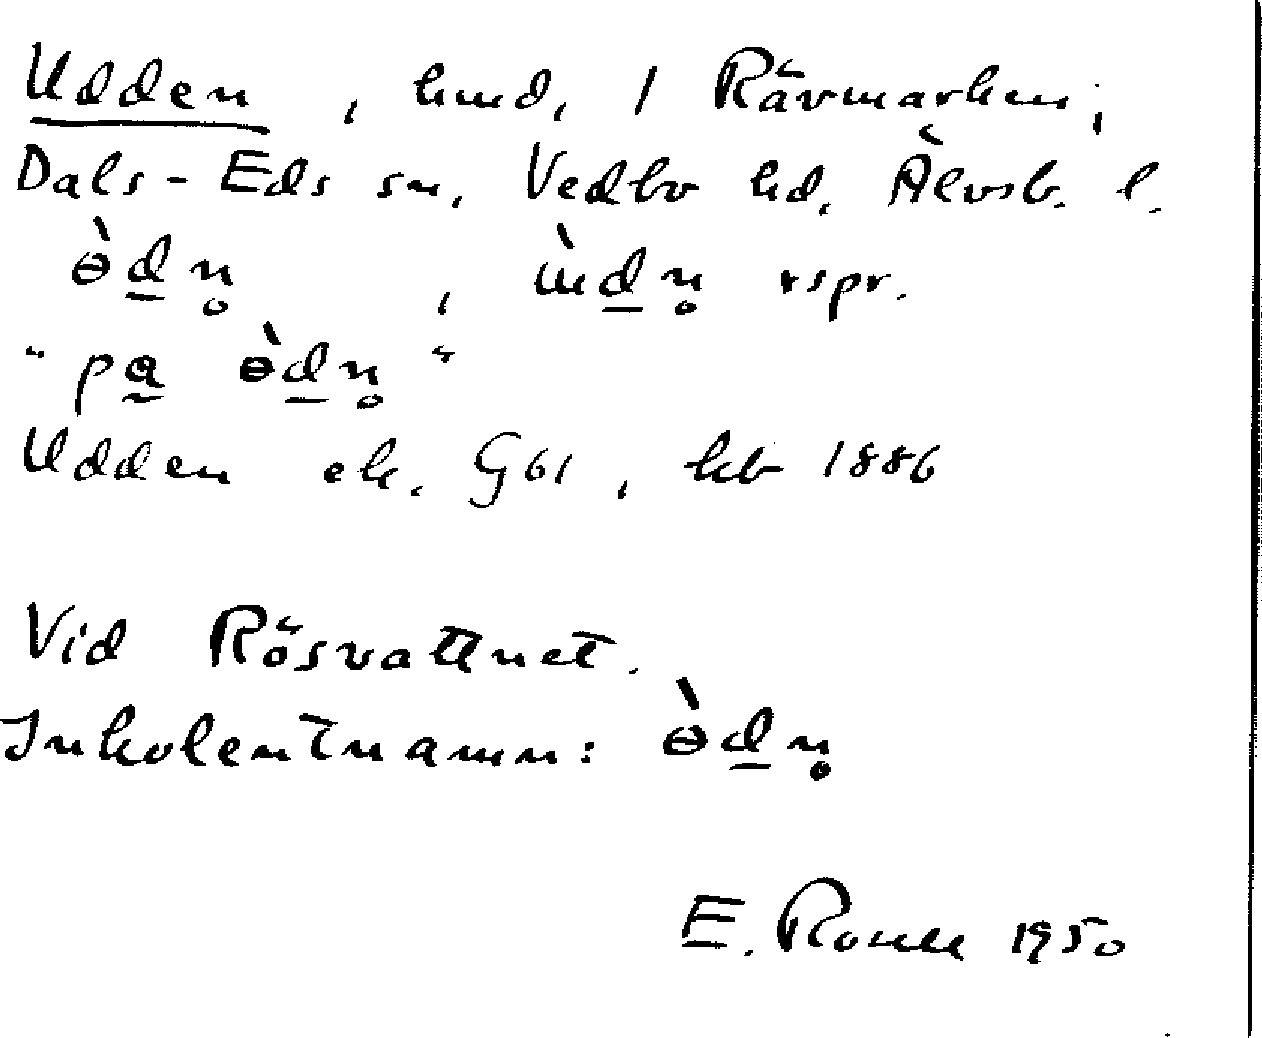 Udden, hmd, 1 Rävmarken,
Dals-Eds sn, Vedbo hd. Älvsb. l.
ɵ̀d̲n̥, ɯ̀d̲n̥ rspr.
"pa̰ ɵ̀d̲n̥"
Udden ek. G61, kb 1886
Vid Rösvattnet.
Inkolentnamn: ɵ̀d̲n̥
E. 1950